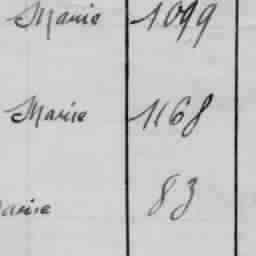 Marie 1099
Marie 1168
Marie 83